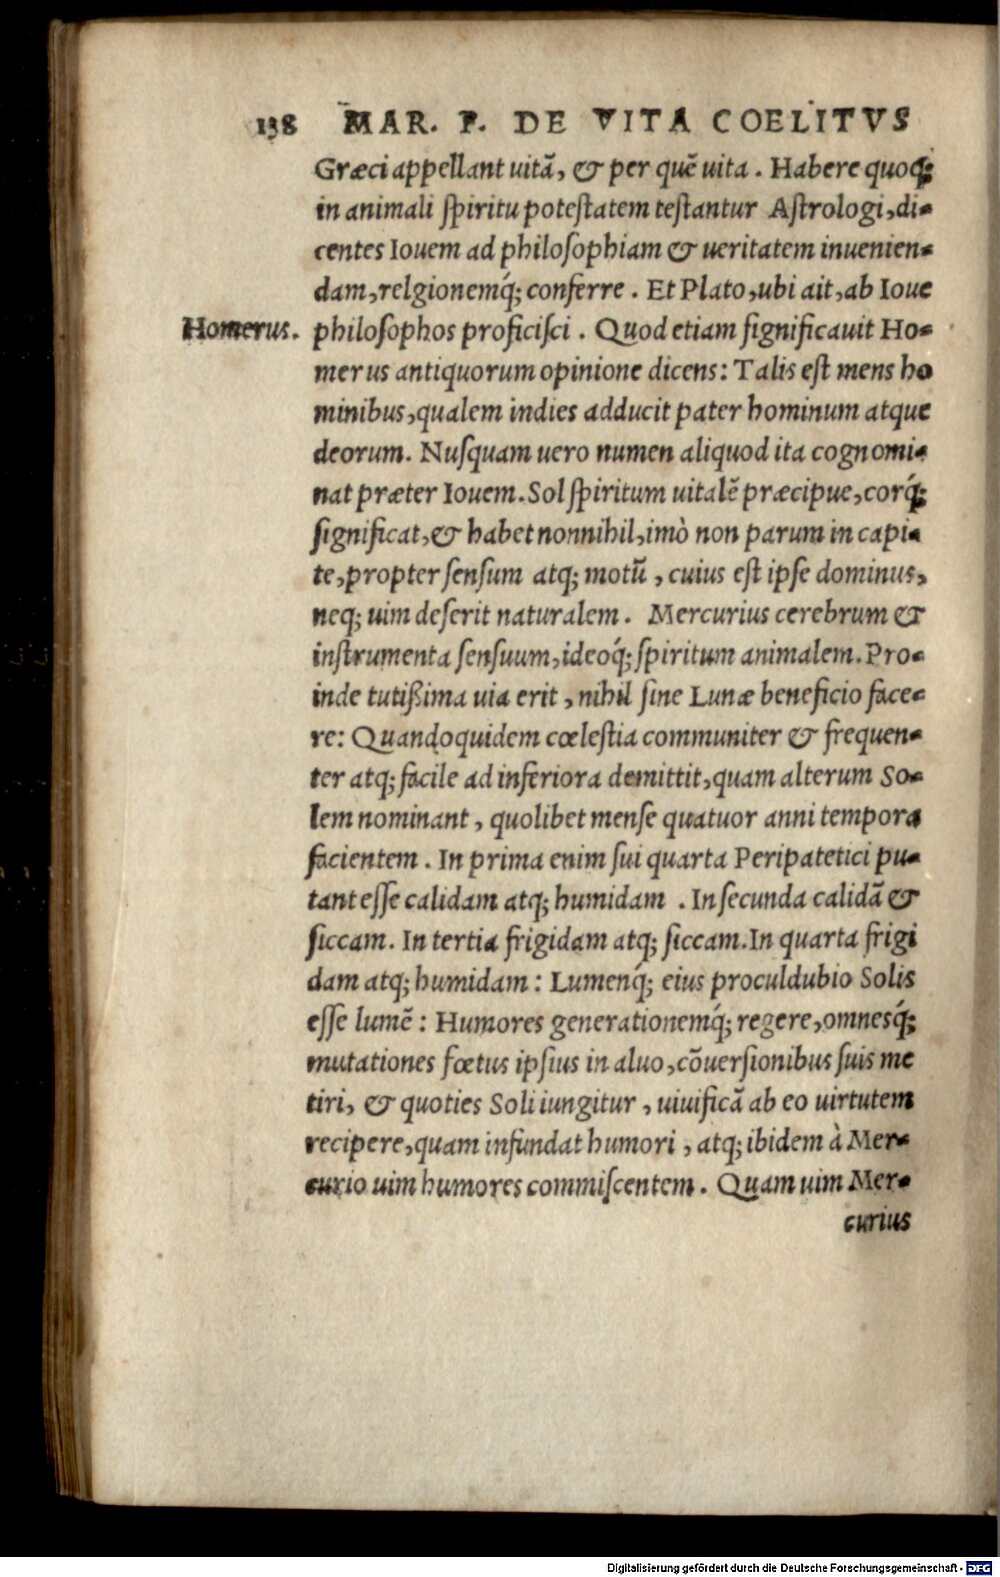 138 MAR. F. DE VITA COELITVS
Græci appellant uitã, & per quẽ uita. Habere quoq;
in animali ſpiritu poteſtatem teſtantur Aſtrologi, di-
centes Iouem ad philoſophiam & ueritatem inuenien-
dam, relgionemq́; conferre. Et Plato, ubi ait, ab Ioue
Homerus. philoſophos proficiſci. Quod etiam ſignificauit Ho-
merus antiquorum opinione dicens: Talis eſt mens ho
minibus, qualem indies adducit pater hominum atque
deorum. Nuſquam uero numen aliquod ita cognomi-
nat præter Iouem. Sol ſpiritum uitalẽ præcipue, corq́;
ſignificat, & habet nonnihil, imò non parum in capi-
te, propter ſenſum atq; motũ, cuius eſt ipſe dominus,
neq; uim deſerit naturalem. Mercurius cerebrum &
inſtrumenta ſenſuum, ideoq́; ſpiritum animalem. Pro-
inde tutißima uia erit, nihil ſine Lunæ beneficio face-
re: Quandoquidem cœleſtia communiter & frequen-
ter atq; facile ad inferiora demittit, quam alterum So-
lem nominant, quolibet menſe quatuor anni tempora
facientem. In prima enim ſui quarta Peripatetici pu-
tant eſſe calidam atq; humidam. In ſecunda calidã &
ſiccam. In tertia frigidam atq; ſiccam. In quarta frigi
dam atq; humidam: Lumenq́; eius proculdubio Solis
eſſe lumẽ: Humores generationemq́; regere, omnesq́;
mutationes fœtus ipſius in aluo, cõuerſionibus ſuis me
tiri, & quoties Soli iungitur, uiuificã ab eo uirtutem
recipere, quam infundat humori, atq; ibidem à Mer-
curio uim humores commiſcentem. Quam uim Mer-
curius
Digitalisierung gefördert durch die Deutsche Forschungsgemeinschaft - DFG